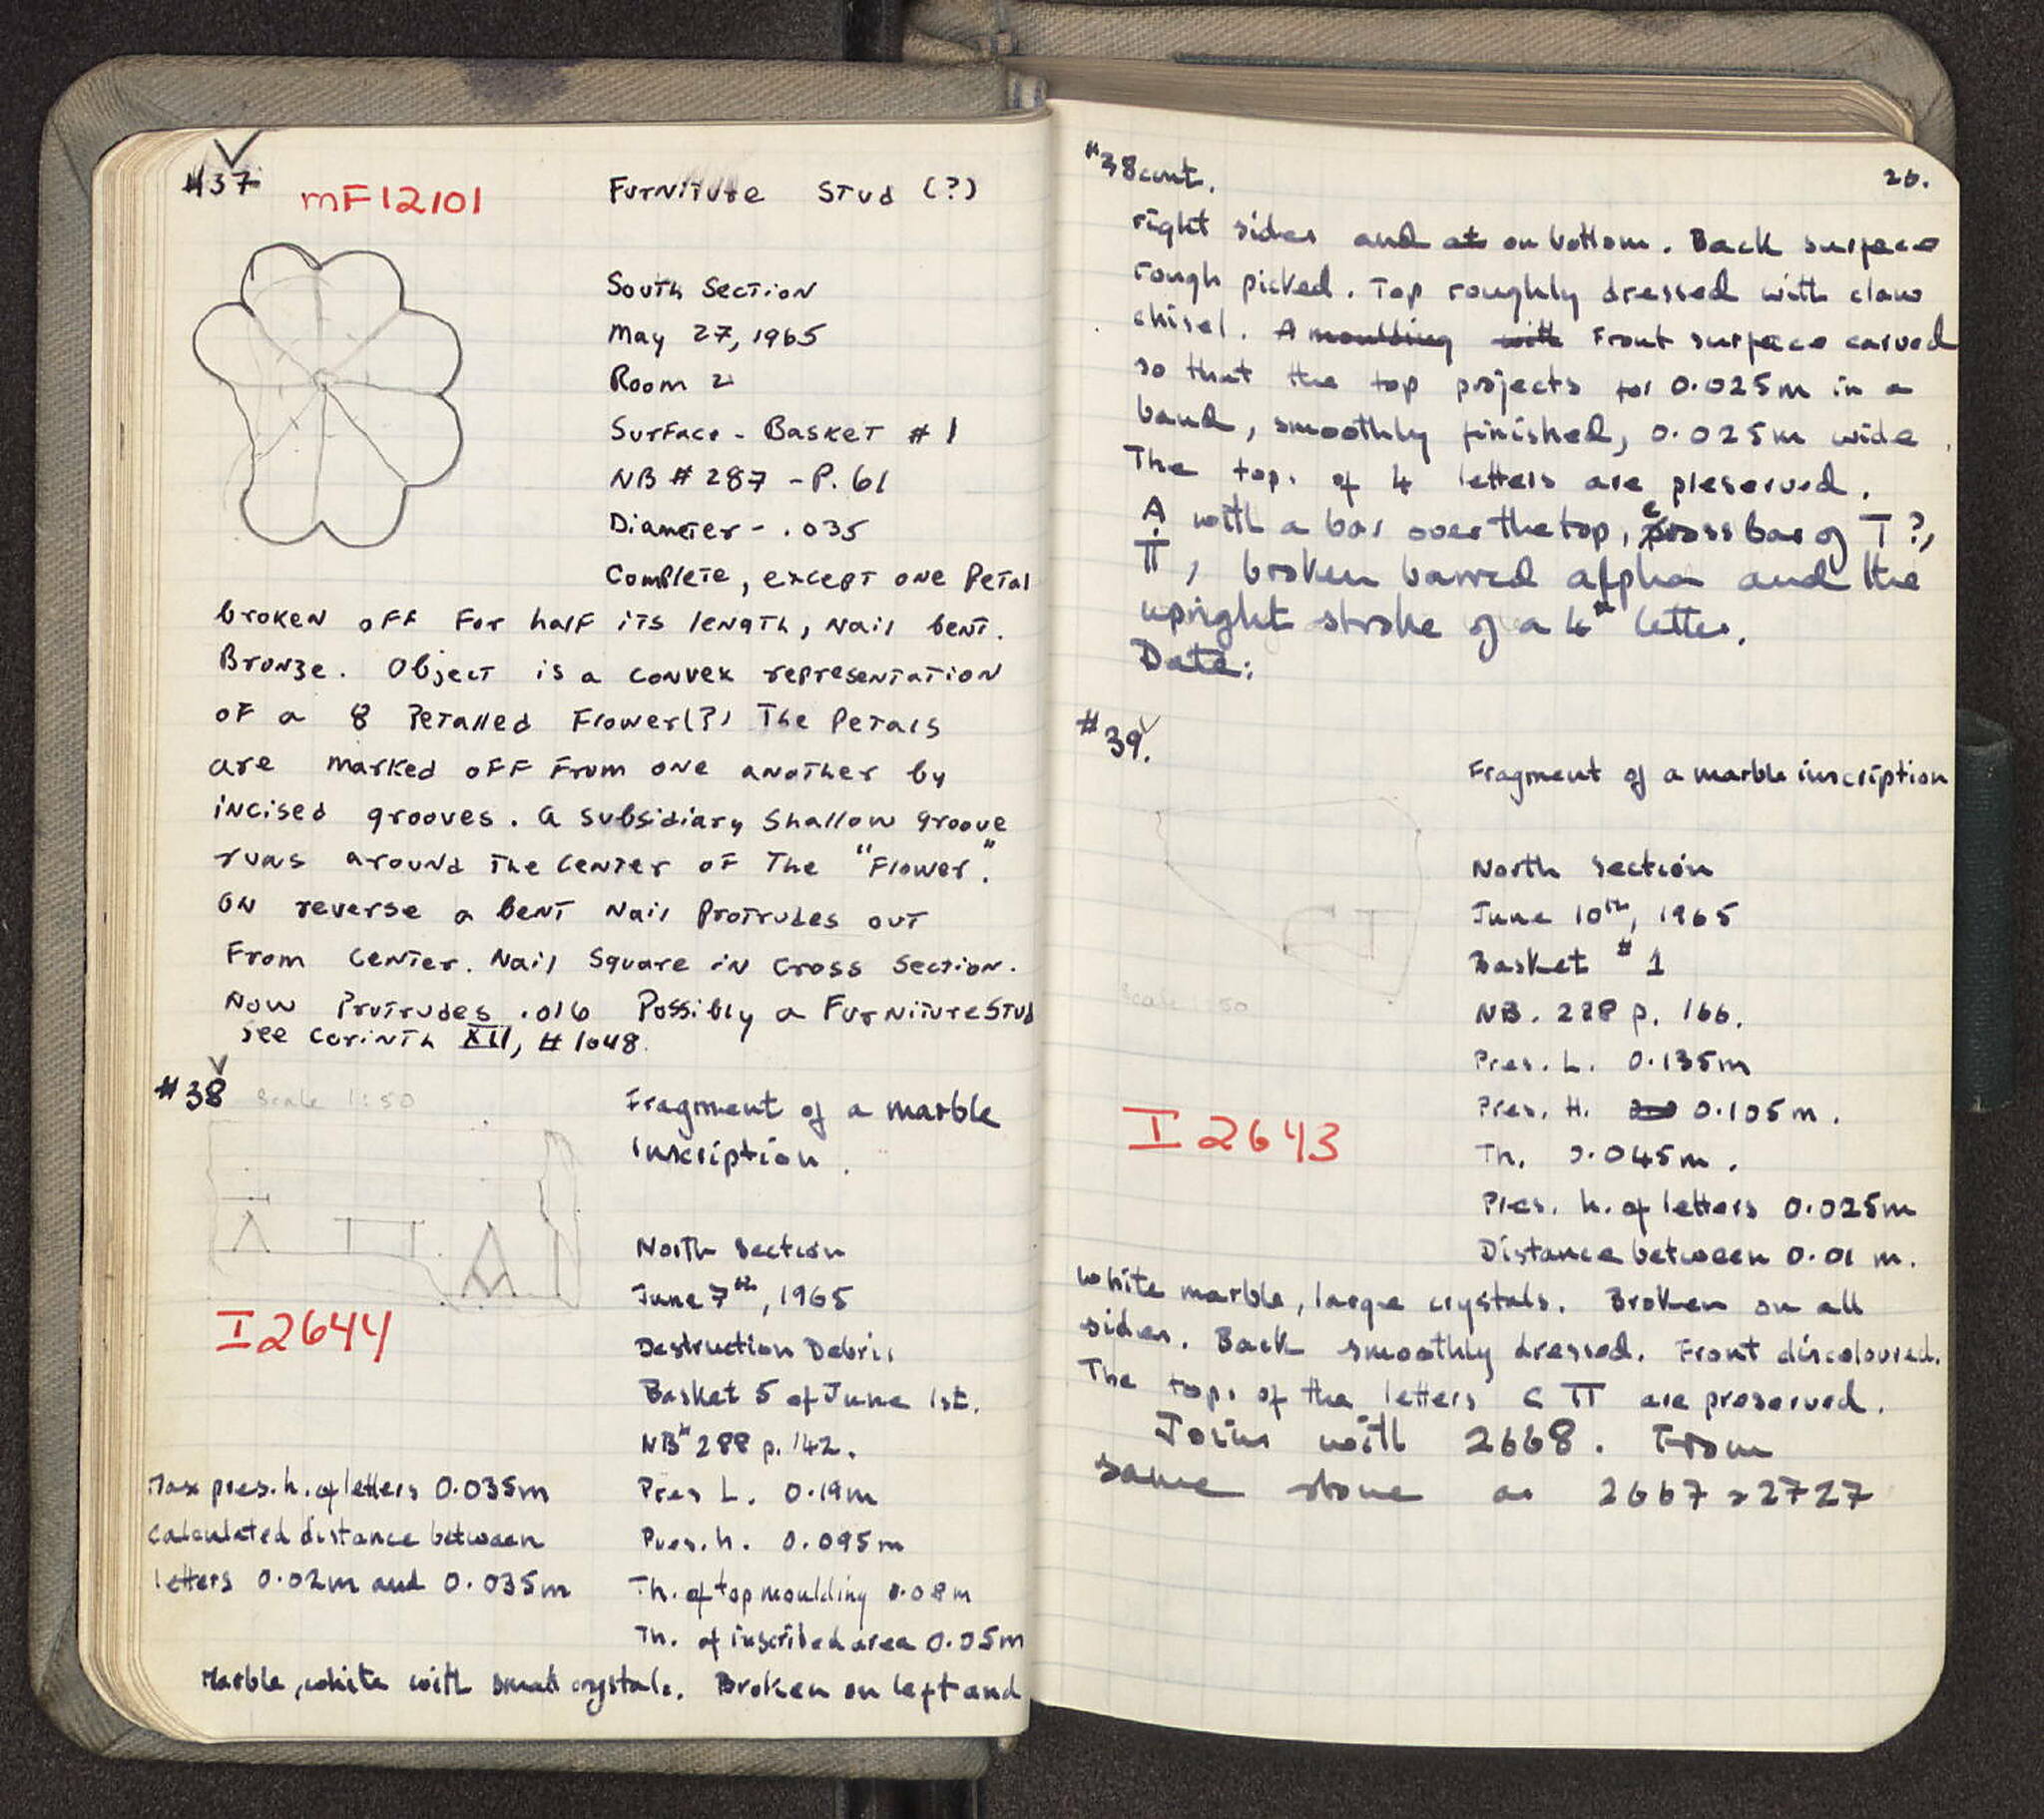 #37
MF12101
Furniture Stud (?)
South Section
May 27, 1965
Room 2
Surface - Basket #1
NB # 287 - P. 61
Diameter - .035
Complete, except one Petal
broken off for half its length, nail bent.
Bronze. Object is a convex representation
of a 8 Petalled Flower(?) The Petals
are marked off from one another by
incised grooves. a subsidiary shallow groove
runs around the center of the "Flower".
On reverse a bent nail Protrudes out
From Center. Nail Square in Cross Section.
Now Protrudes .016 Possibly a Furniture Stud
see Corinth XII, #1048.
#38
Scale 1:50
Fragment of a marble
inscription.
I2644
North Section
June 7th, 1965
Destruction Debris
Basket 5 of June 1st.
NB# 288 p. 142.
Pres L. 0.19m
Pres. h. 0.095m
Th. of top moulding 0.08m
Th. of inscribed area 0.05m
Max pres. h. of letters 0.035m
calculated distance between
letters 0.02m and 0.035m
Marble, white with small crystals. Broken on left and
#38 cont.
26.
right sides and at on bottom. Back surface
rough picked. Top roughly dressed with claw
chisel. A moulding with Front surface carved
so that the top projects for 0.025m in a
band, smoothly finished, 0.025m wide.
The tops of 4 letters are preserved.
A with a bar over the top, cross bar of T?,
Π, broken barred alpha and the
upright stroke of a 4th letter.
Date:
#39.
Fragment of a marble inscription
Scale 1:50
North Section
June 10th, 1965
Basket #1
NB. 288 p. 166.
Pres. L. 0.135m
Pres. H. 0.105m.
Th. 0.045m.
Pres. h. of letters 0.025m
Distance between 0.01 m.
I2643
White marble, large crystals. Broken on all
sides. Back smoothly dressed. Front discoloured.
The tops of the letters C Π are preserved.
Joins with 2668. From
same stone as 2667, 2727